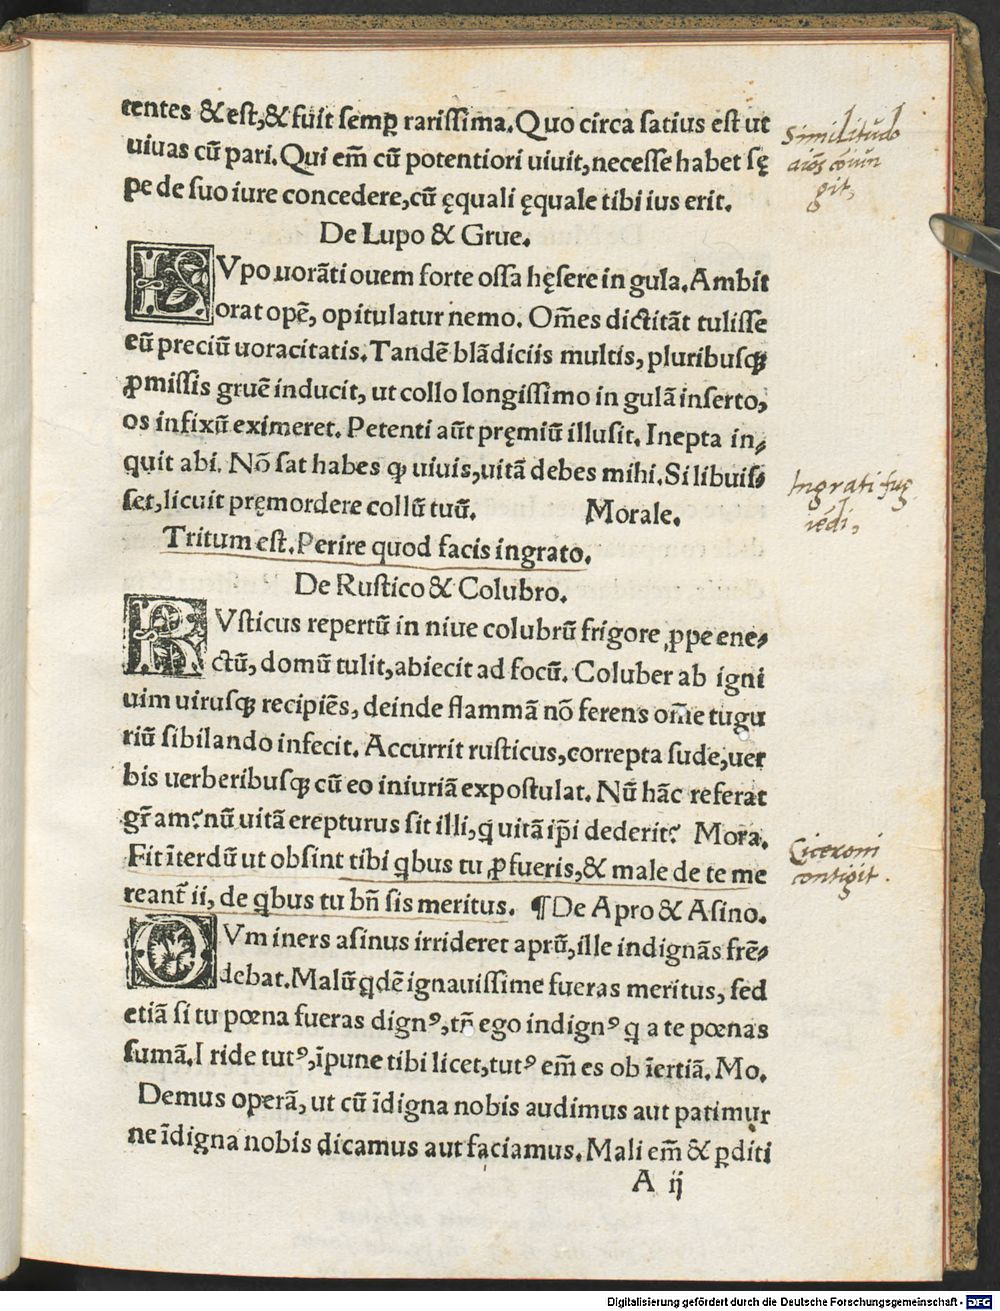 tentes & est, & fuit semꝑ rarissima. Quo circa satius est ut
uiuas cū pari. Qui em̄ cū potentiori uiuit, necesse habet sę
pe de suo iure concedere, cū ęquali ęquale tibi ius erit.
De Lupo & Grue.
LVpo uorāti ouem forte ossa hęsere in gula. Ambit
orat opē, opitulatur nemo. Om̄es dictitāt tulisse
eū preciū uoracitatis. Tandē blādiciis multis, pluribusqꝫ
ꝓmissis gruē inducit, ut collo longissimo in gulā inserto,
os infixū eximeret. Petenti aūt pręmiū illusit. Inepta in⸗
quit abi. Nō sat habes ꝙ uiuis, uitā debes mihi. Si libuis⸗
set, licuit pręmordere collū tuū. Morale.
Tritum est. Perire quod facis ingrato.
De Rustico & Colubro.
RVsticus repertū in niue colubrū frigore ꝓpe ene⸗
ctū, domū tulit, abiecit ad focū. Coluber ab igni
uim uirusqꝫ recipiēs, deinde flammā nō ferens om̄e tugu
riū sibilando infecit. Accurrit rusticus, correpta sude, uer
bis uerberibusqꝫ cū eo iniuriā expostulat. Nū hāc referat
gr̄am? nū uitā erepturus sit illi, ꝗ uitā ip̄i dederit? Mora.
Fit īterdū ut obsint tibi ꝗbus tu ꝓfueris, & male de te me
reant̄ ii, de ꝗbus tu bn̄ sis meritus. ¶ De Apro & Asino.
CVm iners asinus irrideret aprū, ille indignās frē⸗
debat. Malū ꝗdē ignauissime fueras meritus, sed
etiā si tu pœna fueras dignꝰ, tn̄ ego indignꝰ ꝗ a te pœnas
sumā. I ride tutꝰ, īpune tibi licet, tutꝰ em̄ es ob īertiā. Mo.
Demus operā, ut cū īdigna nobis audimus aut patimur
ne īdigna nobis dicamus aut faciamus. Mali em̄ & ꝑditi
A ij
Similitudo
git,
Ingrati fug
iēdi,
Ciceroni
contigit.
Digitalisierung gefördert durch die Deutsche Forschungsgemeinschaft - DFG